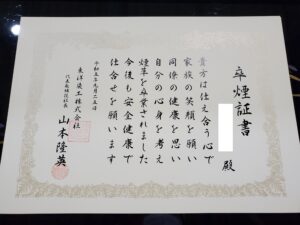 卒煙証書
殿
貴方は仕え合う心で
家族の笑顔を願い
同僚の健康を思い
自分の心身を考え
煙草を卒業されました
今後も安全健康で
仕合せを願います
令和五年九月二五日
東洋染工株式会社
代表取締役社長
山本隆英